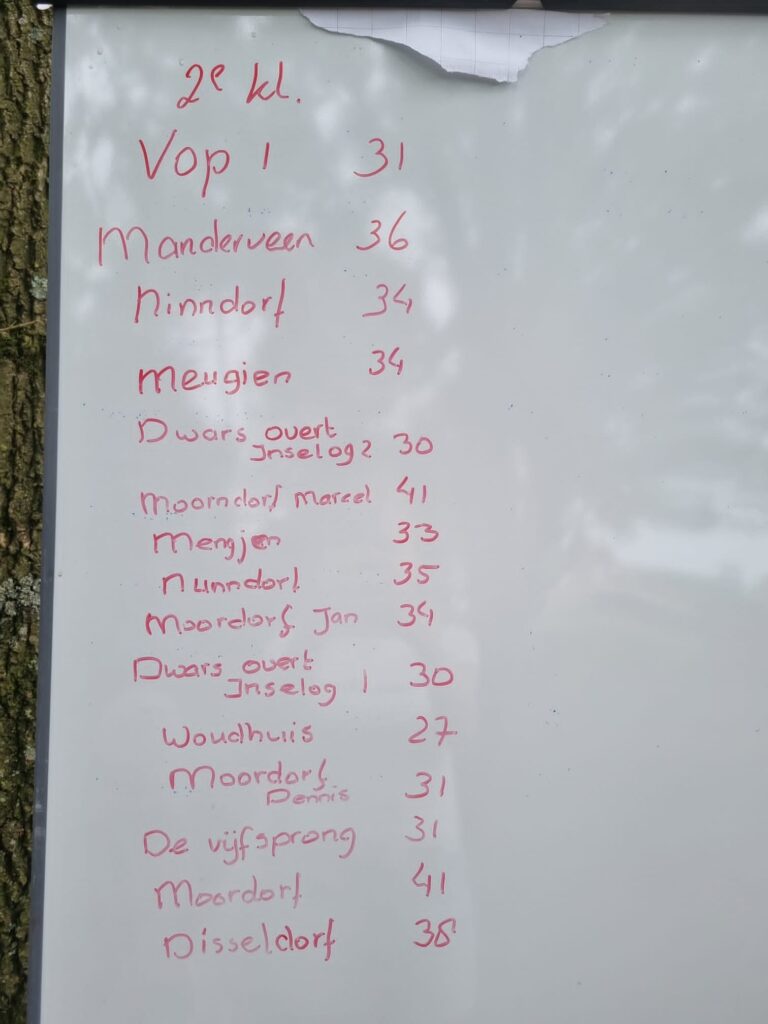 2e kl.
Vop 1 31
Manderveen 36
Ninndorf 34
Meugien 34
Dwars overt
Inselog 2 30
Moorndorf Marcel 41
Mengjen 33
Nunndorf 35
Moordorf Jan 34
Dwars overt
Inselog 1 30
Woudhuis 27
Moordorf
Dennis 31
De vijfsprong 31
Moordorf 41
Disseldorf 38